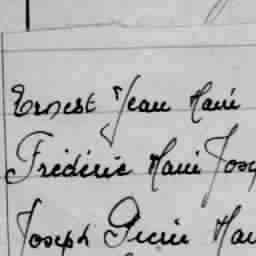 Ernest Jean Marie
Frédéric Marie Jose
Joseph Pierre Mar